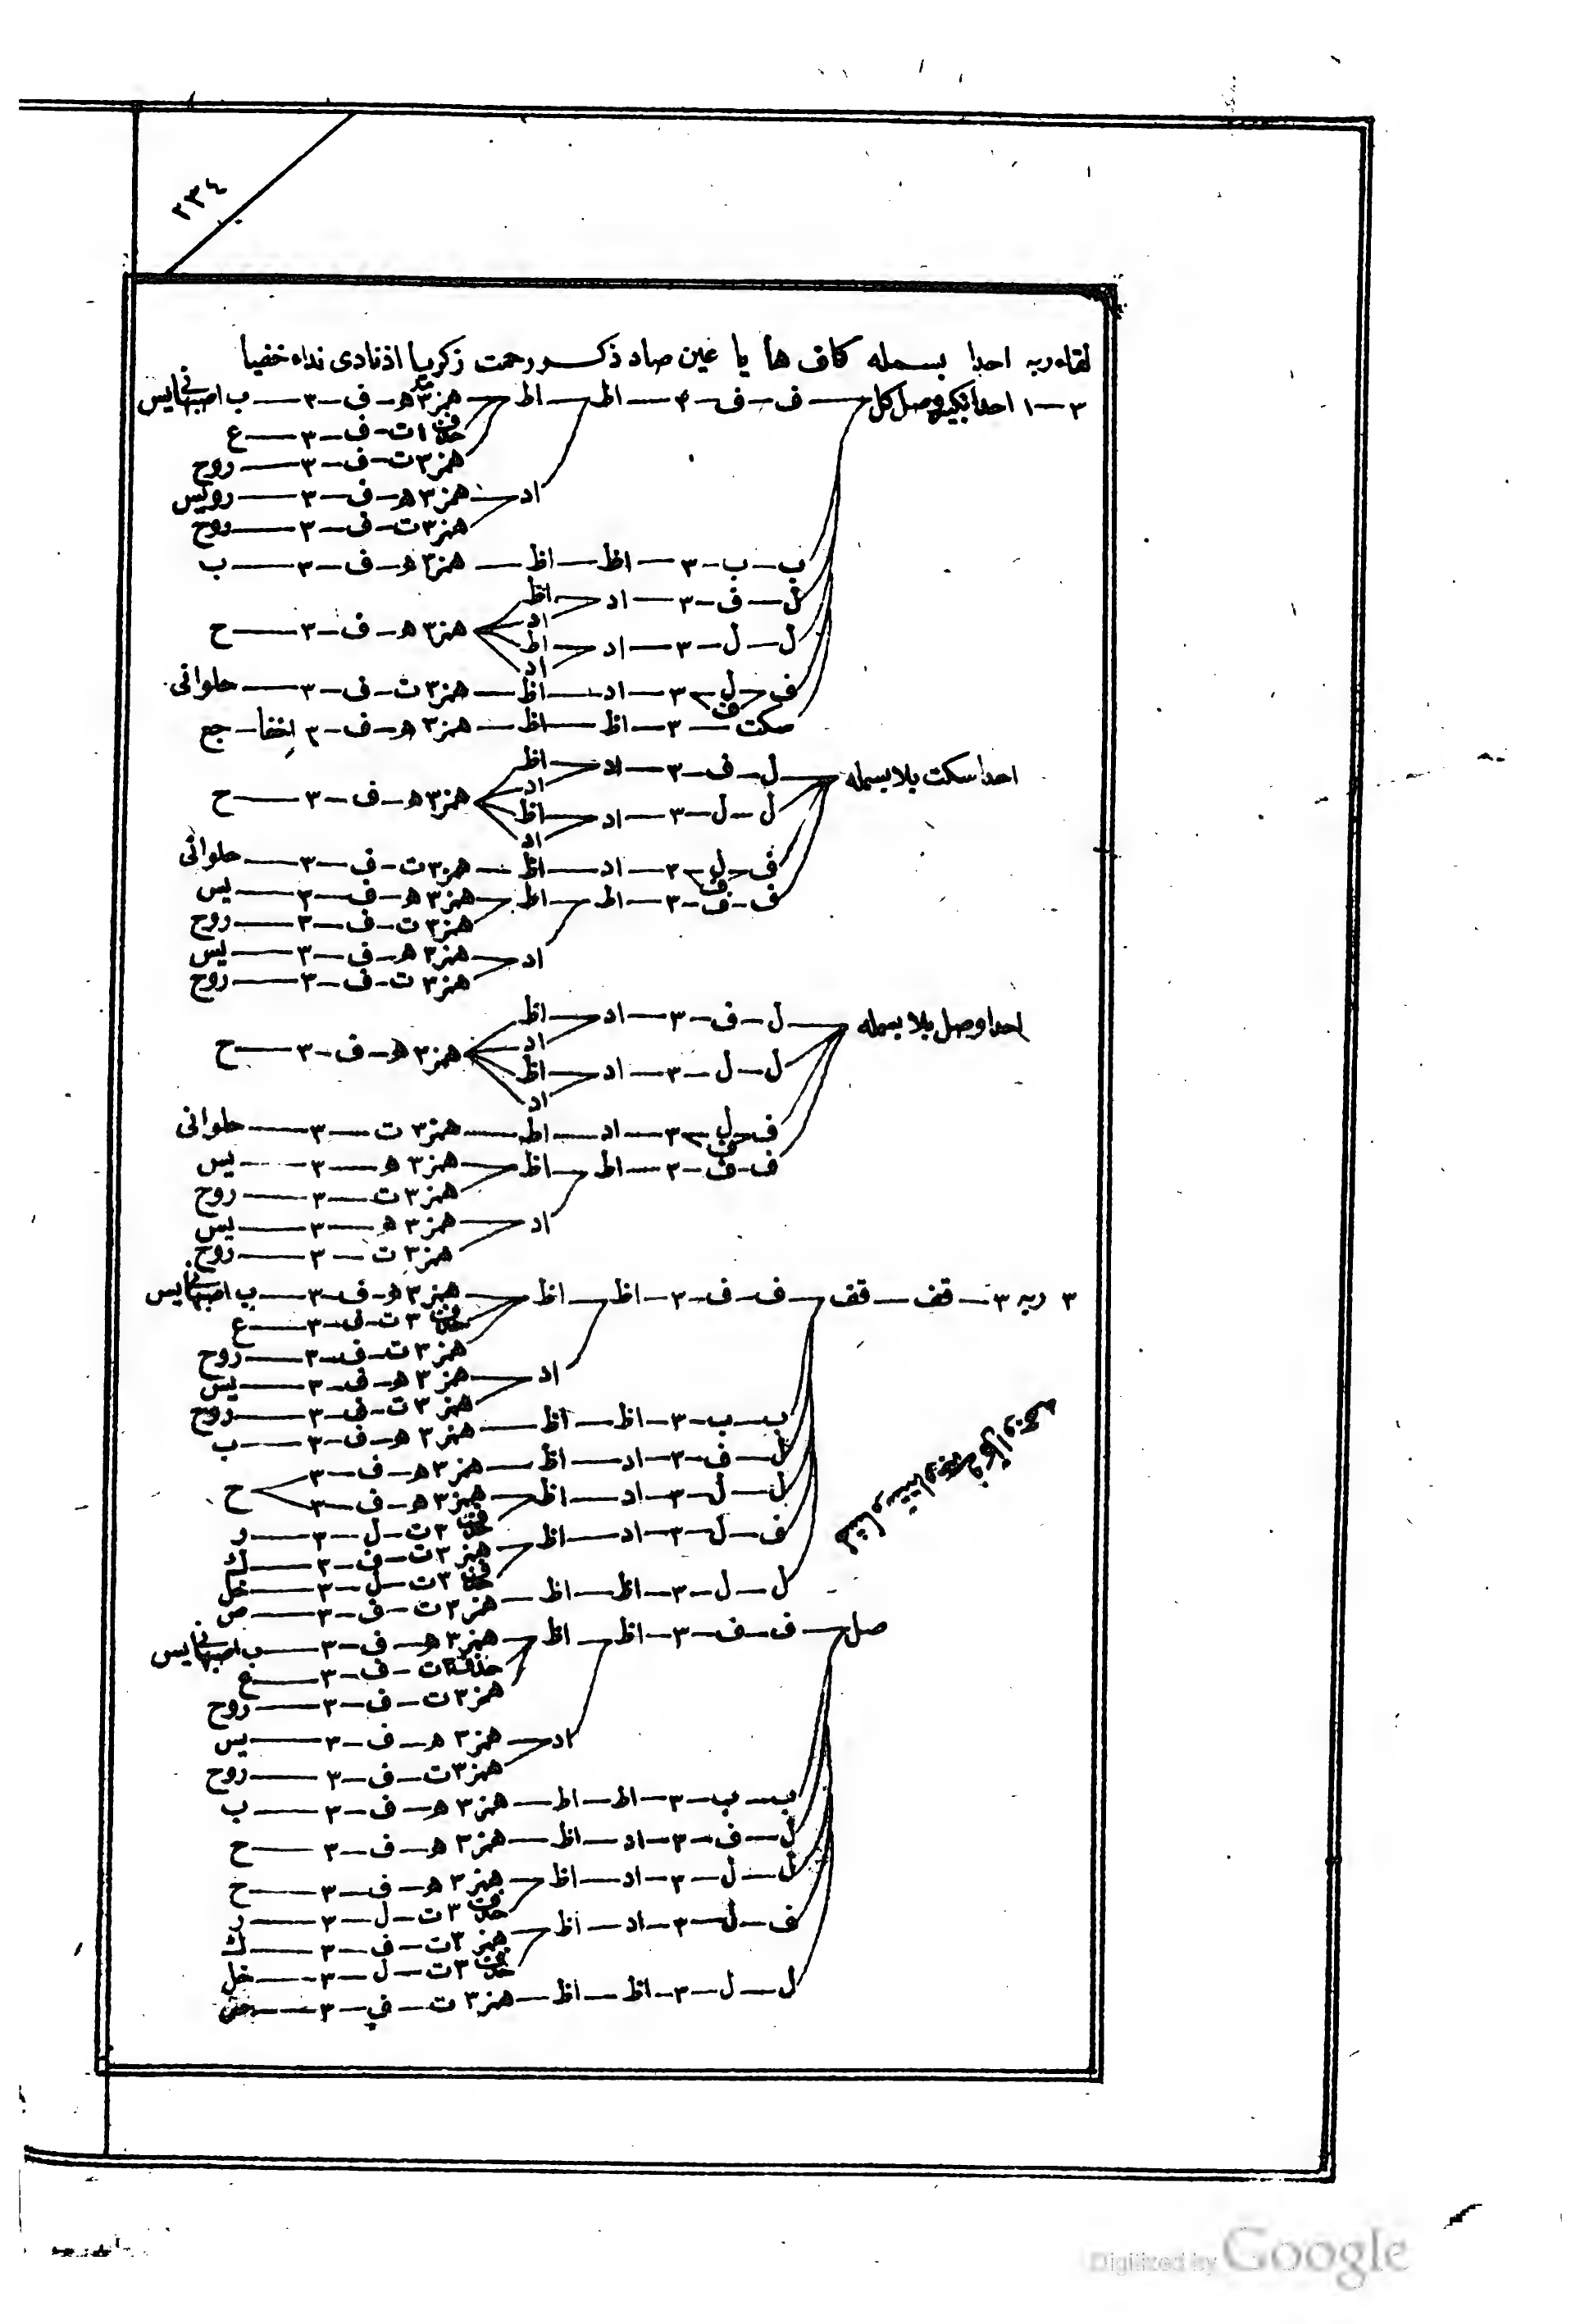 ٢٣٤
لقاء ربه احدا بسمله كاف ها يا عين صاد ذكر رحمت زكريا اذ نادى نداء خفيا
٣ — ١ احدا تكبير وصل كل — ف — ف — ٣ — اظ — اظ — همز ٣ هـ — ف — ٣ — ب اصبهانى يس
حذف ٣ ت — ف — ٣ — ع
همز ٣ ت — ف — ٣ — روح
اد — همز ٣ هـ — ف — ٣ — رويس
همز ٣ ت — ف — ٣ — روح
ب — ب — ٣ — اظ — اظ — همز ٣ هـ — ف — ٣ — ب
ل — ف — ٣ — اد — اظ
اد
همز ٣ هـ — ف — ٣ — ح
ل — ل — ٣ — اد — اظ
اد
ف — ل — ٣ — اد — اظ — همز ٣ ت — ف — ٣ — حلوانى
ف
سكت — ٣ — اظ — اظ — همز ٣ هـ — ف — ٣ اخفا — جع
احدا سكت بلا بسمله — ل — ف — ٣ — اد — اظ
اد
همز ٣ هـ — ف — ٣ — ح
ل — ل — ٣ — اد — اظ
اد
ف — ل — ٣ — اد — اظ — همز ٣ ت — ف — ٣ — حلوانى
ف
ف — ف — ٣ — اظ — اظ — همز ٣ هـ — ف — ٣ — يس
همز ٣ ت — ف — ٣ — روح
اد — همز ٣ هـ — ف — ٣ — يس
همز ٣ ت — ف — ٣ — روح
احدا وصل بلا بسمله — ل — ف — ٣ — اد — اظ
اد
همز ٣ هـ — ف — ٣ — ح
ل — ل — ٣ — اد — اظ
اد
ف — ل — ٣ — اد — اظ — همز ٣ ت — ٣ — حلوانى
ف
ف — ف — ٣ — اظ — اظ — همز ٣ هـ — ٣ — يس
همز ٣ ت — ٣ — روح
اد — همز ٣ هـ — ٣ — يس
همز ٣ ت — ٣ — روح
٣ ربه ٣ — قف — قف — ف — ف — ٣ — اظ — اظ — همز ٣ هـ — ف — ٣ — ب اصبهانى يس
حذف ٣ ت — ف — ٣ — ع
همز ٣ ت — ف — ٣ — روح
اد — همز ٣ هـ — ف — ٣ — يس
همز ٣ ت — ف — ٣ — روح
ب — ب — ٣ — اظ — اظ — همز ٣ هـ — ف — ٣ — ب
ل — ف — ٣ — اد — اظ — همز ٣ هـ — ف — ٣
ح
ل — ل — ٣ — اد — اظ — همز ٣ هـ — ف — ٣
حذف ٣ ت — ل — ٣ — ر
ف — ل — ٣ — اد — اظ — همز ٣ ت — ف — ٣ — ك
حذف ٣ ت — ل — ٣ — خل
ل — ل — ٣ — اظ — اظ — همز ٣ ت — ف — ٣ — ص
صل — ف — ف — ٣ — اظ — اظ — همز ٣ هـ — ف — ٣ — ب اصبهانى يس
حذف ٣ ت — ف — ٣ — ع
همز ٣ ت — ف — ٣ — روح
اد — همز ٣ هـ — ف — ٣ — يس
همز ٣ ت — ف — ٣ — روح
ب — ب — ٣ — اظ — اظ — همز ٣ هـ — ف — ٣ — ب
ل — ف — ٣ — اد — اظ — همز ٣ هـ — ف — ٣ — ح
ل — ل — ٣ — اد — اظ — همز ٣ هـ — ف — ٣ — ح
حذف ٣ ت — ل — ٣ — ر
ف — ل — ٣ — اد — اظ — همز ٣ ت — ف — ٣ — ك
حذف ٣ ت — ل — ٣ — خل
ل — ل — ٣ — اظ — اظ — همز ٣ ت — ف — ٣ — ص
Digitized by Google